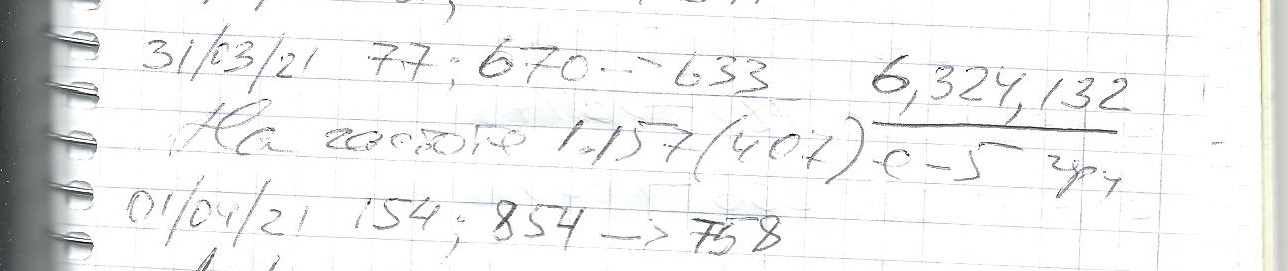 31/03/21 77; 670 --> 633 6,324,132
На частоте 1.157(407)e-5 Герц
01/04/21 154; 854 —> 758